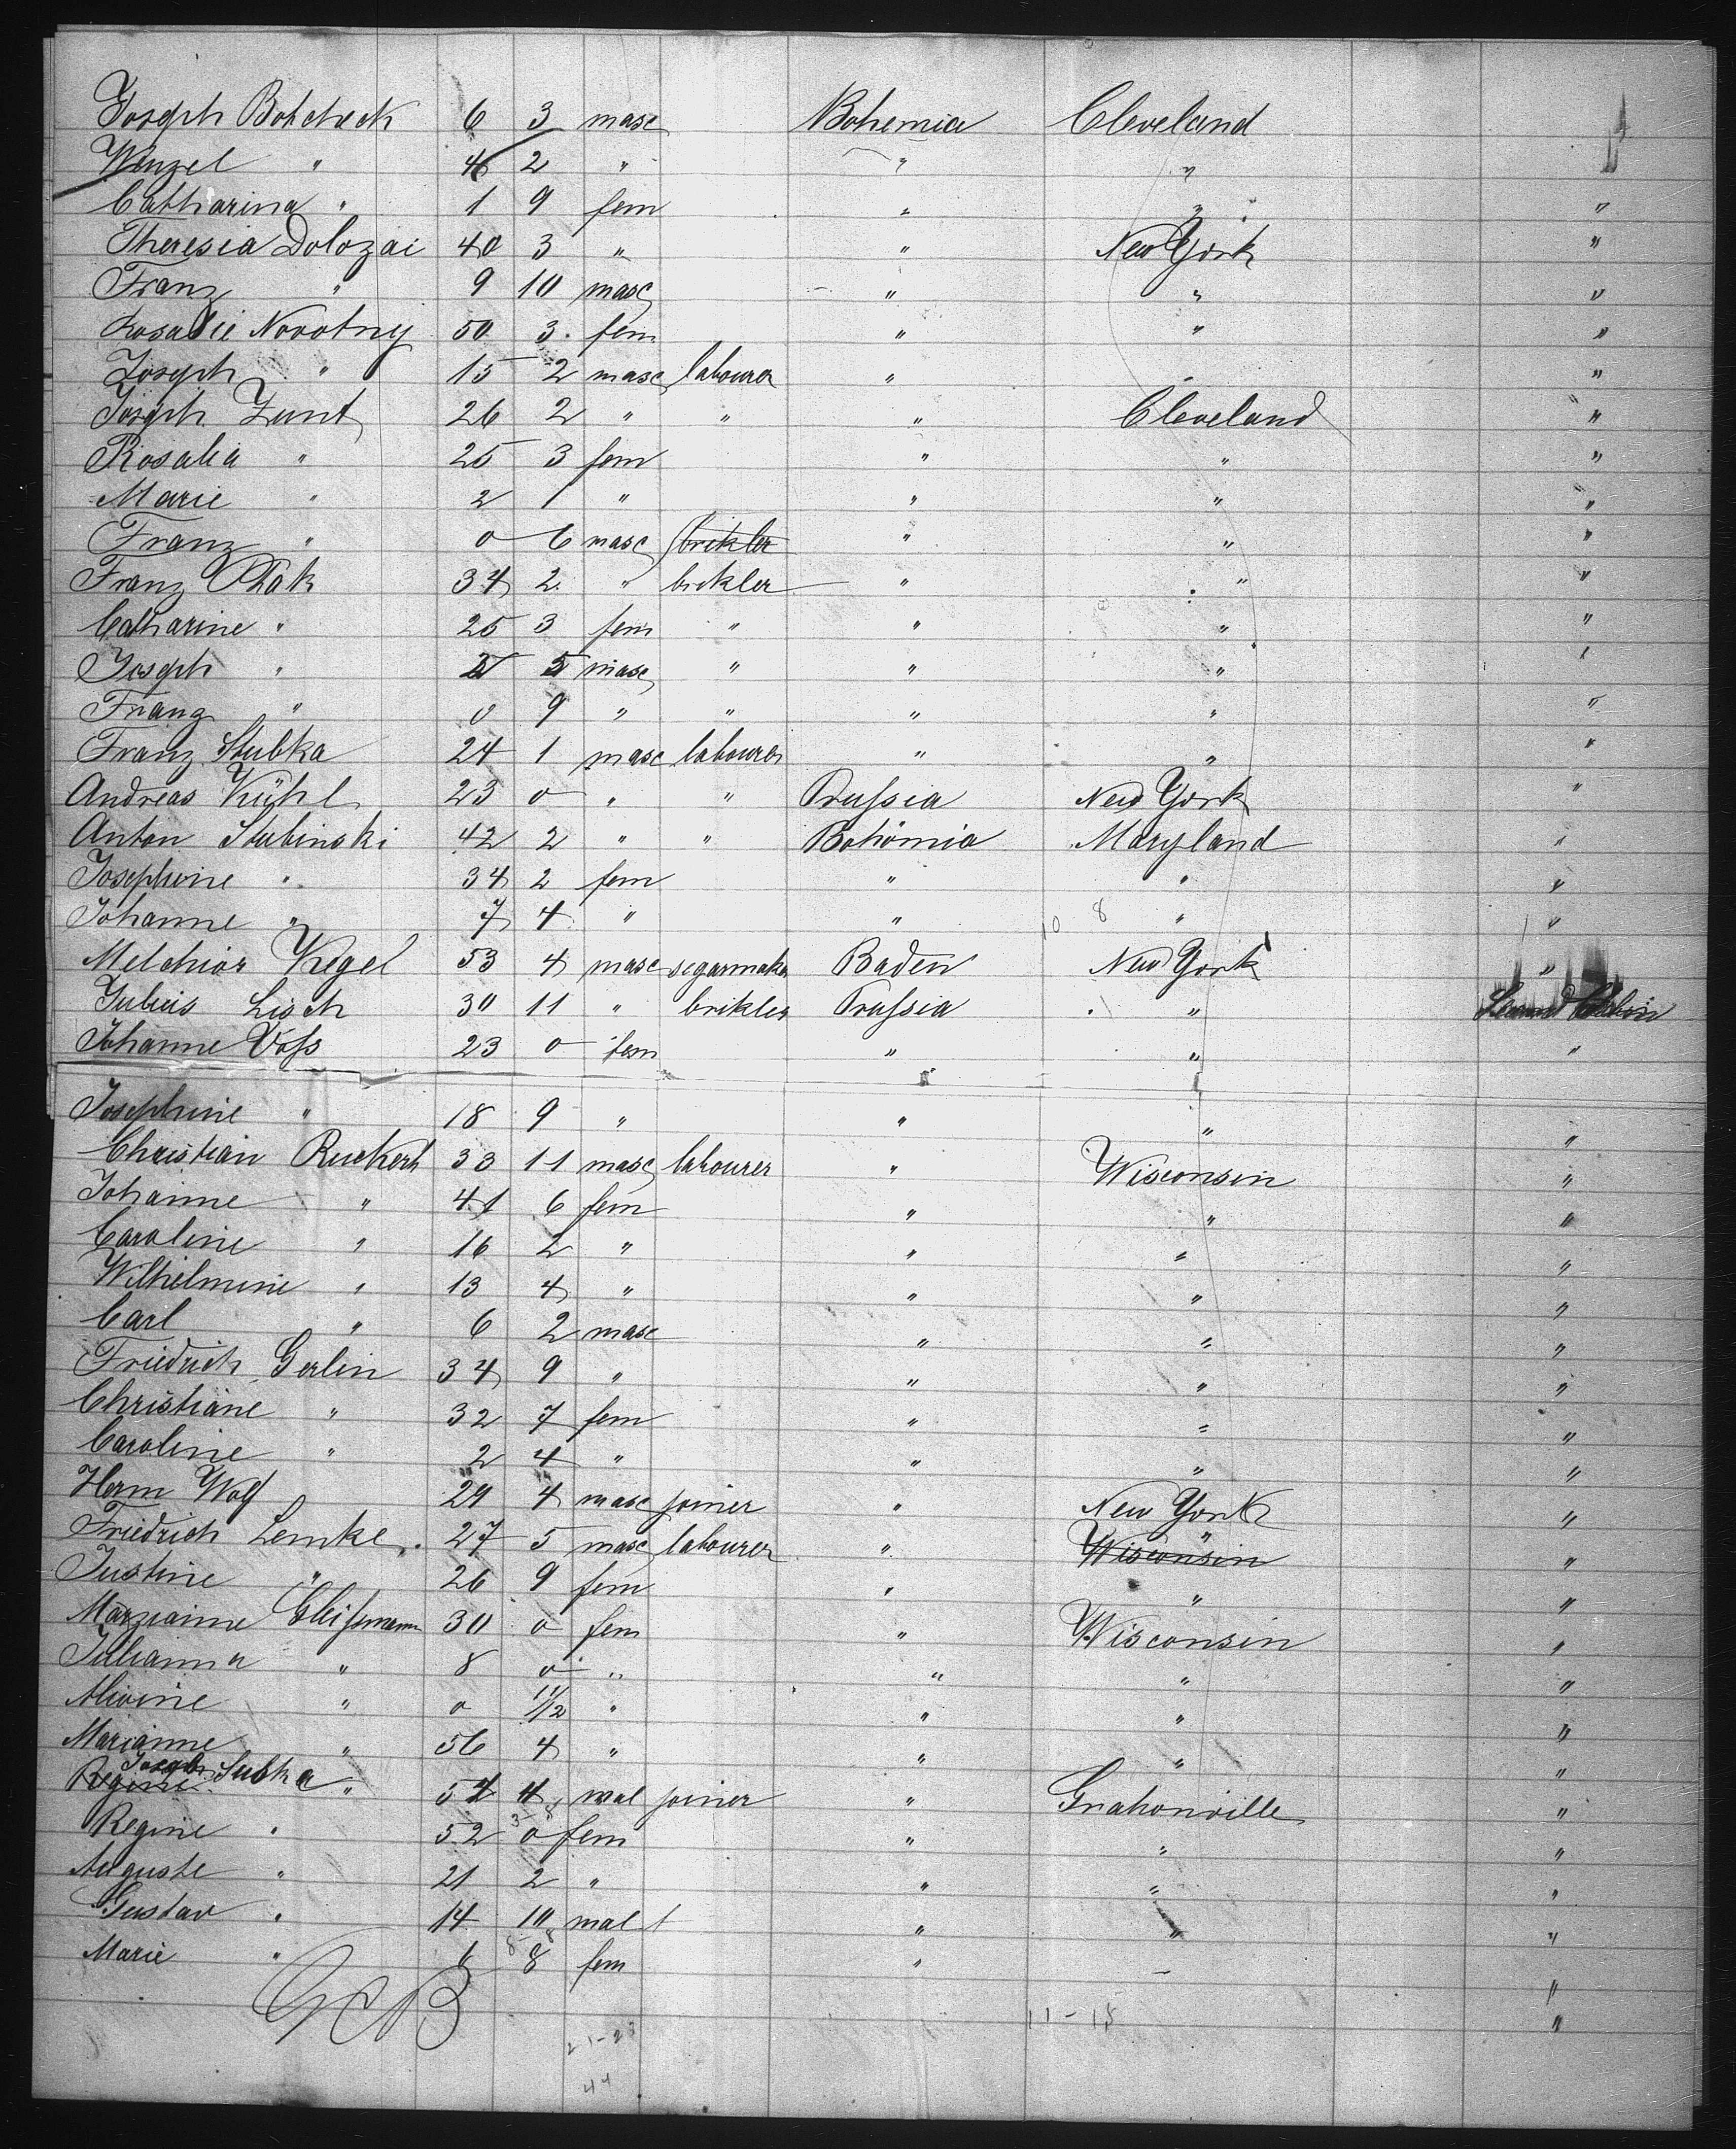 Joseph Botcheck 6 3 masc Bohemia Cleveland
Wenzel " 4 2 " " "
Catharina " 1 9 fem " " "
Theresia Dolozai 40 3 " " New York "
Franz " 9 10 masc " " "
Rosalie Novotny 50 3. fem " " "
Joseph " 15 2 masc labourer " " "
Joseph Zunt 26 2 " " " Cleveland "
Rosalia " 25 3 fem " " "
Marie " 2 1 " " " "
Franz " 0 6 masc brikler " " "
Franz Ptak 34 2. " brikler " " "
Catharine " 25 3 fem " " " "
Joseph " 5 masc " " " "
Franz " 0 9 " " " " "
Franz Stubka 24 1 masc labourer " " "
Andreas Kühl 23 0 " " Prussia New York "
Anton Stubinski 42 2 " " Bohömia Maryland "
Josephine " 34 2 fem " " "
Johanne " 7 4 " " 10 8 " "
Melchior Kegel 53 4 masc segarmaker Baden New York "
Julius Lisch 30 11 " brikler Prussia "
Johanne Voss 23 0 fem " " "
Josephine " 18 9 " " " "
Christian Ruckert 33 11 masc labourer " Wisconsin "
Johanne " 41 6 fem " " "
Caroline " 16 2 " " " "
Wilhelmine " 13 4 " " " "
Carl " 6 2 masc " " "
Friedrich Gerlin 34 9 " " " "
Christiane " 32 7 fem " " "
Caroline " 2 4 " " " "
Herm Wolf 29 4 masc joiner " New York "
Friedrich Lemke 27 5 masc labourer " Wisconsin " "
Justine " 26 9 fem " " "
Marzianne Gleissmann 30 0 fem " Wisconsin "
Julianna " 8 0 " " " "
Alwine " 0 11/12 " " " "
Marianne " 56 4 " " " "
Joseph
Regine Subka " 54 4 mal joiner " Grahonville "
Regine " 52 0 fem " " "
Auguste " 21 2 " " " "
Gustav " 14 10 mal " " "
Marie " 6 8 fem " "
"
11-18
21-23
44